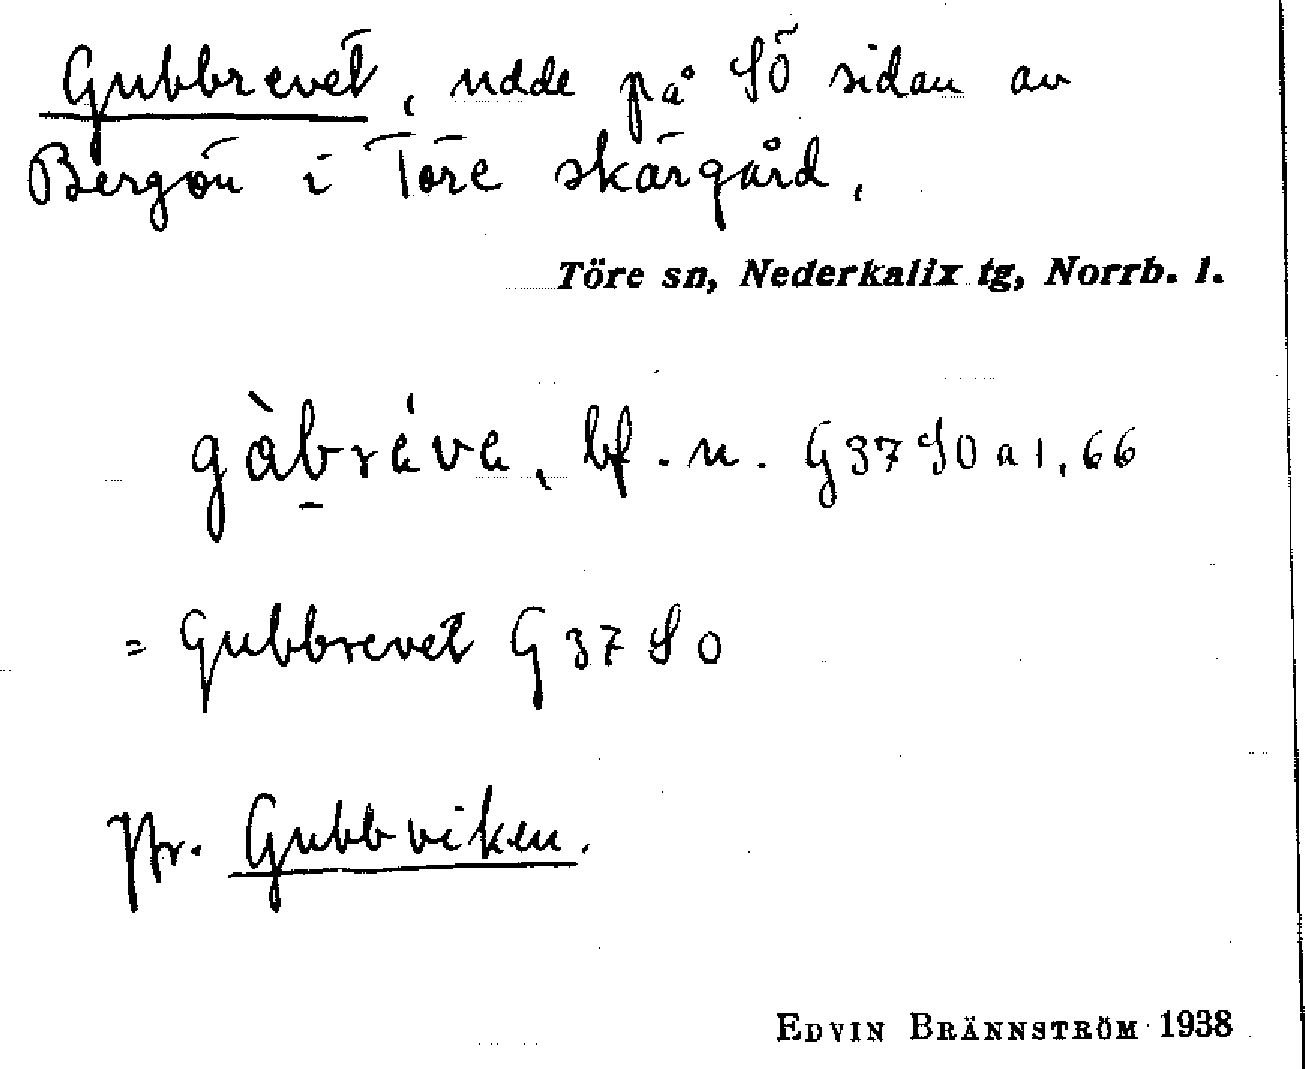 Gubbrevet, udde på SÖ sidan av
Bergön i Töre skärgård.
Töre sn, Nederkalix tg, Norrb. l.
gàbréve, bf. n. G 37 SO a 1, 66
= Gubbrevet G 37 SO
Jfr. Gubbviken.
EDVIN BRÄNNSTRÖM 1938